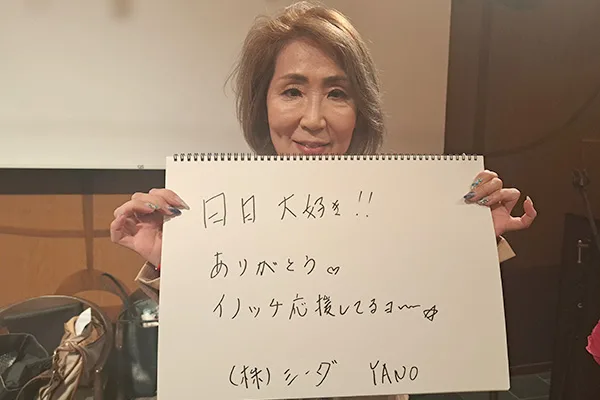 日日大好き!!
ありがとう♡
イノッチ応援してるヨ〜☆
(株)シーダ YANO